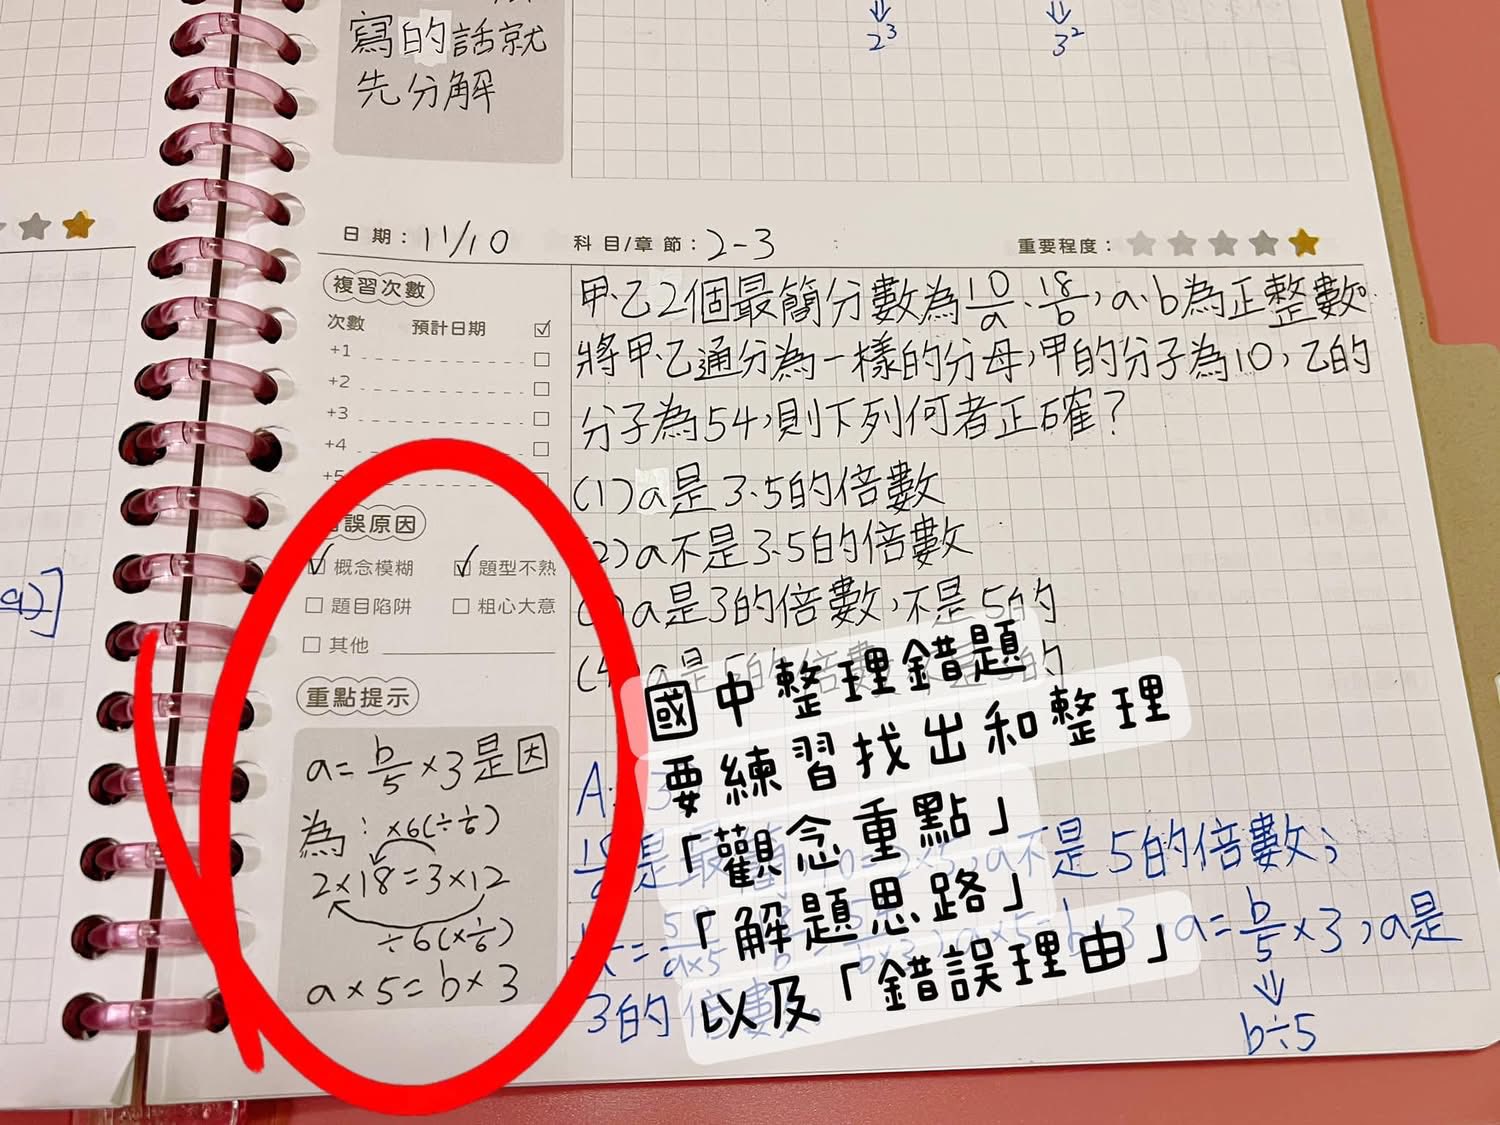 寫的話就
先分解
2³
3²
日期：11/10
科目/章節：2-3
重要程度：
複習次數
次數 預計日期
+1
+2
+3
+4
誤原因
概念模糊 題型不熟
題目陷阱 粗心大意
其他
重點提示
a=b/5×3是因
為：×6(÷1/6)
2×18=3×12
÷6(×1/6)
a×5=b×3
甲、乙2個最簡分數為10/a、18/b，a、b為正整數。
將甲、乙通分為一樣的分母，甲的分子為10，乙的
分子為54，則下列何者正確？
(1)a是3、5的倍數
2)a不是3、5的倍數
)a是3的倍數，不是5的
(4)a是5的倍數
國中整理錯題
要練習找出和整理
「觀念重點」
「解題思路」
以及「錯誤理由」
A：3
是最 10=2×5，a不是5的倍數；
a=b/5×3，a是
3的倍數。
b÷5